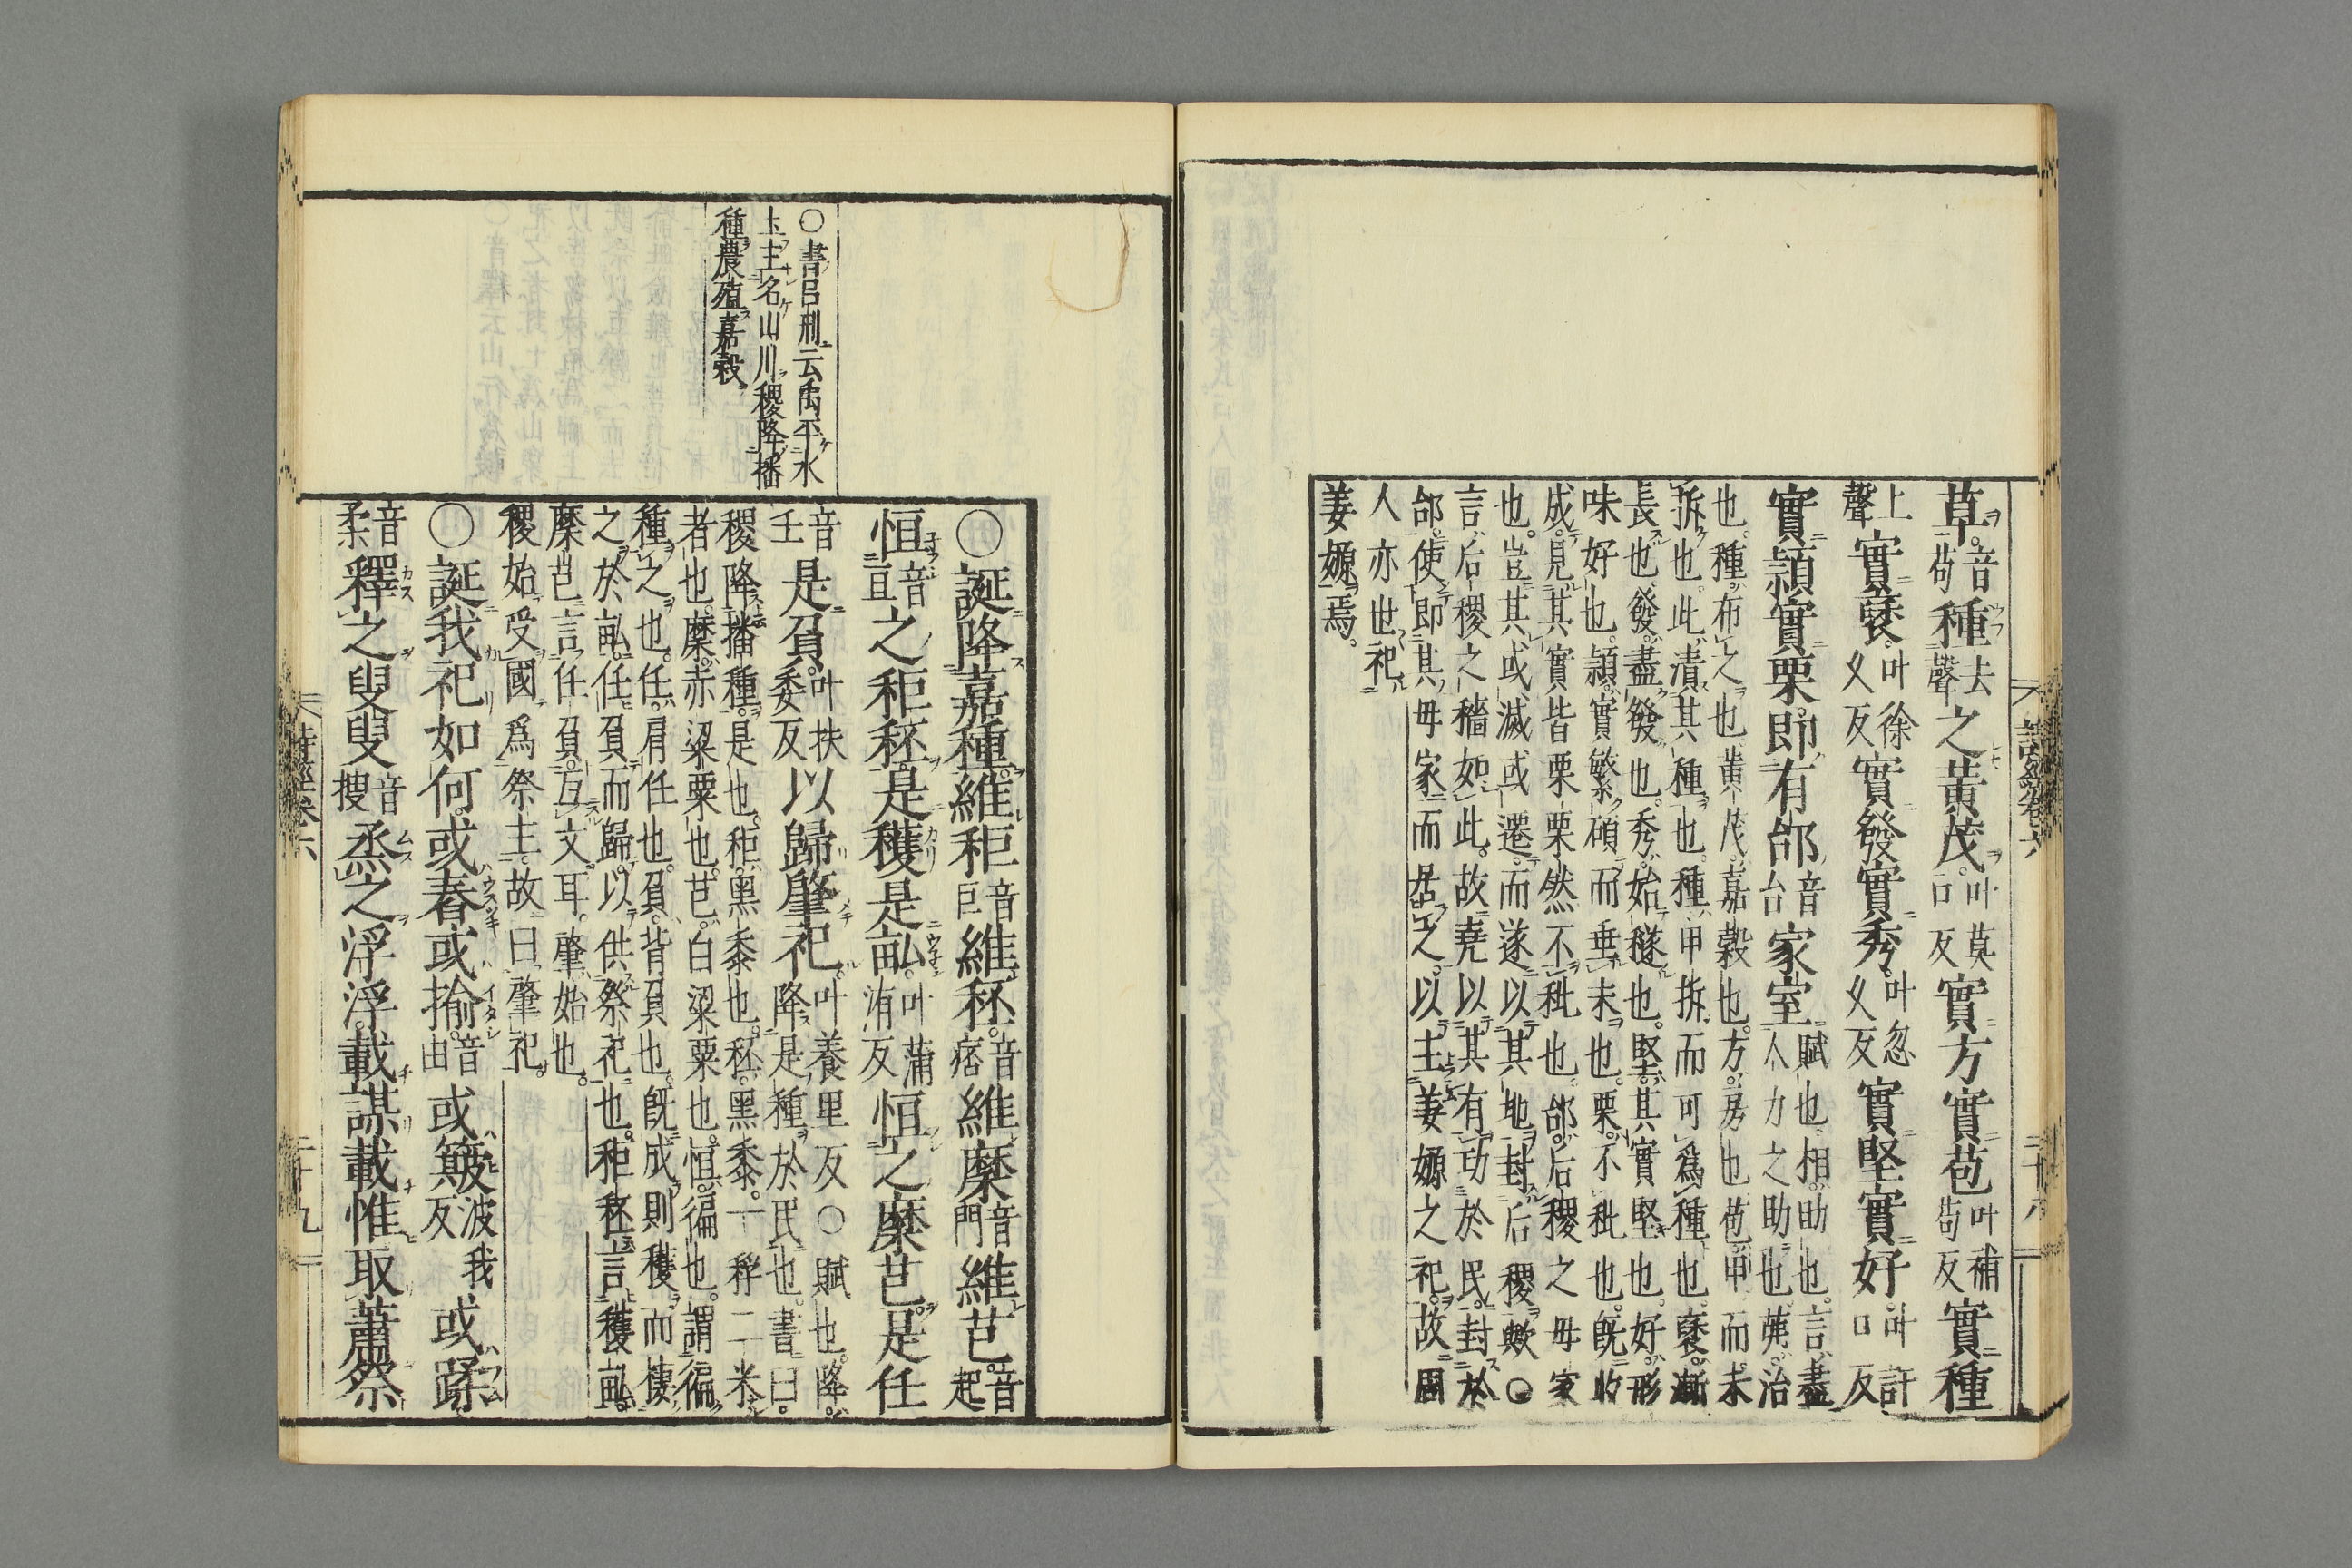 草音苟種去聲之黃茂叶莫口反實方實苞叶補苟反實種
上聲實褎叶徐久反實發實秀叶忽久反實堅實好叶許口反
實穎實栗即有邰音台家室賦也相助也言盡人力之助也茀治
也種布之也黃茂嘉穀也方房也苞甲而未
拆也此漬其種也種甲拆而可爲種也褎漸
長也發盡發也秀始穟也堅其實堅也好形
味好也穎實繁碩而垂末也栗不秕也旣收
成見其實皆栗栗然不秕也邰后稷之母家
也豈其或滅或遷而遂以其地封后稷歟○
言后稷之穡如此故堯以其有功於民封於
邰使即其母家而居之以主姜嫄之祀故周
人亦世祀
姜嫄焉
詩經卷六
二十八
○書呂刑云禹平水
土主名山川稷降播
種農殖嘉穀
○誕降嘉種維秬音巨維秠音痞維穈音門維芑音起
恒音亘之秬秠是穫是畝叶蒲洧反恒之穈芑是任
音壬是負叶扶委反以歸肇祀叶養里反○賦也降降是種於民也書曰
稷降播種是也秬黑黍也秠黑黍一稃二米
者也穈赤粱粟也芑白粱粟也恒徧也謂徧
種之也任肩任也負背負也旣成則穫而棲
之於畝任負而歸以供祭祀也秬秠言穫畝
穈芑言任負互文耳肇始也
稷始受國爲祭主故曰肇祀
○誕我祀如何或舂或揄音由或簸波我反或蹂
音柔釋之叟叟音搜烝之浮浮載謀載惟取蕭祭
詩經卷六
二十九